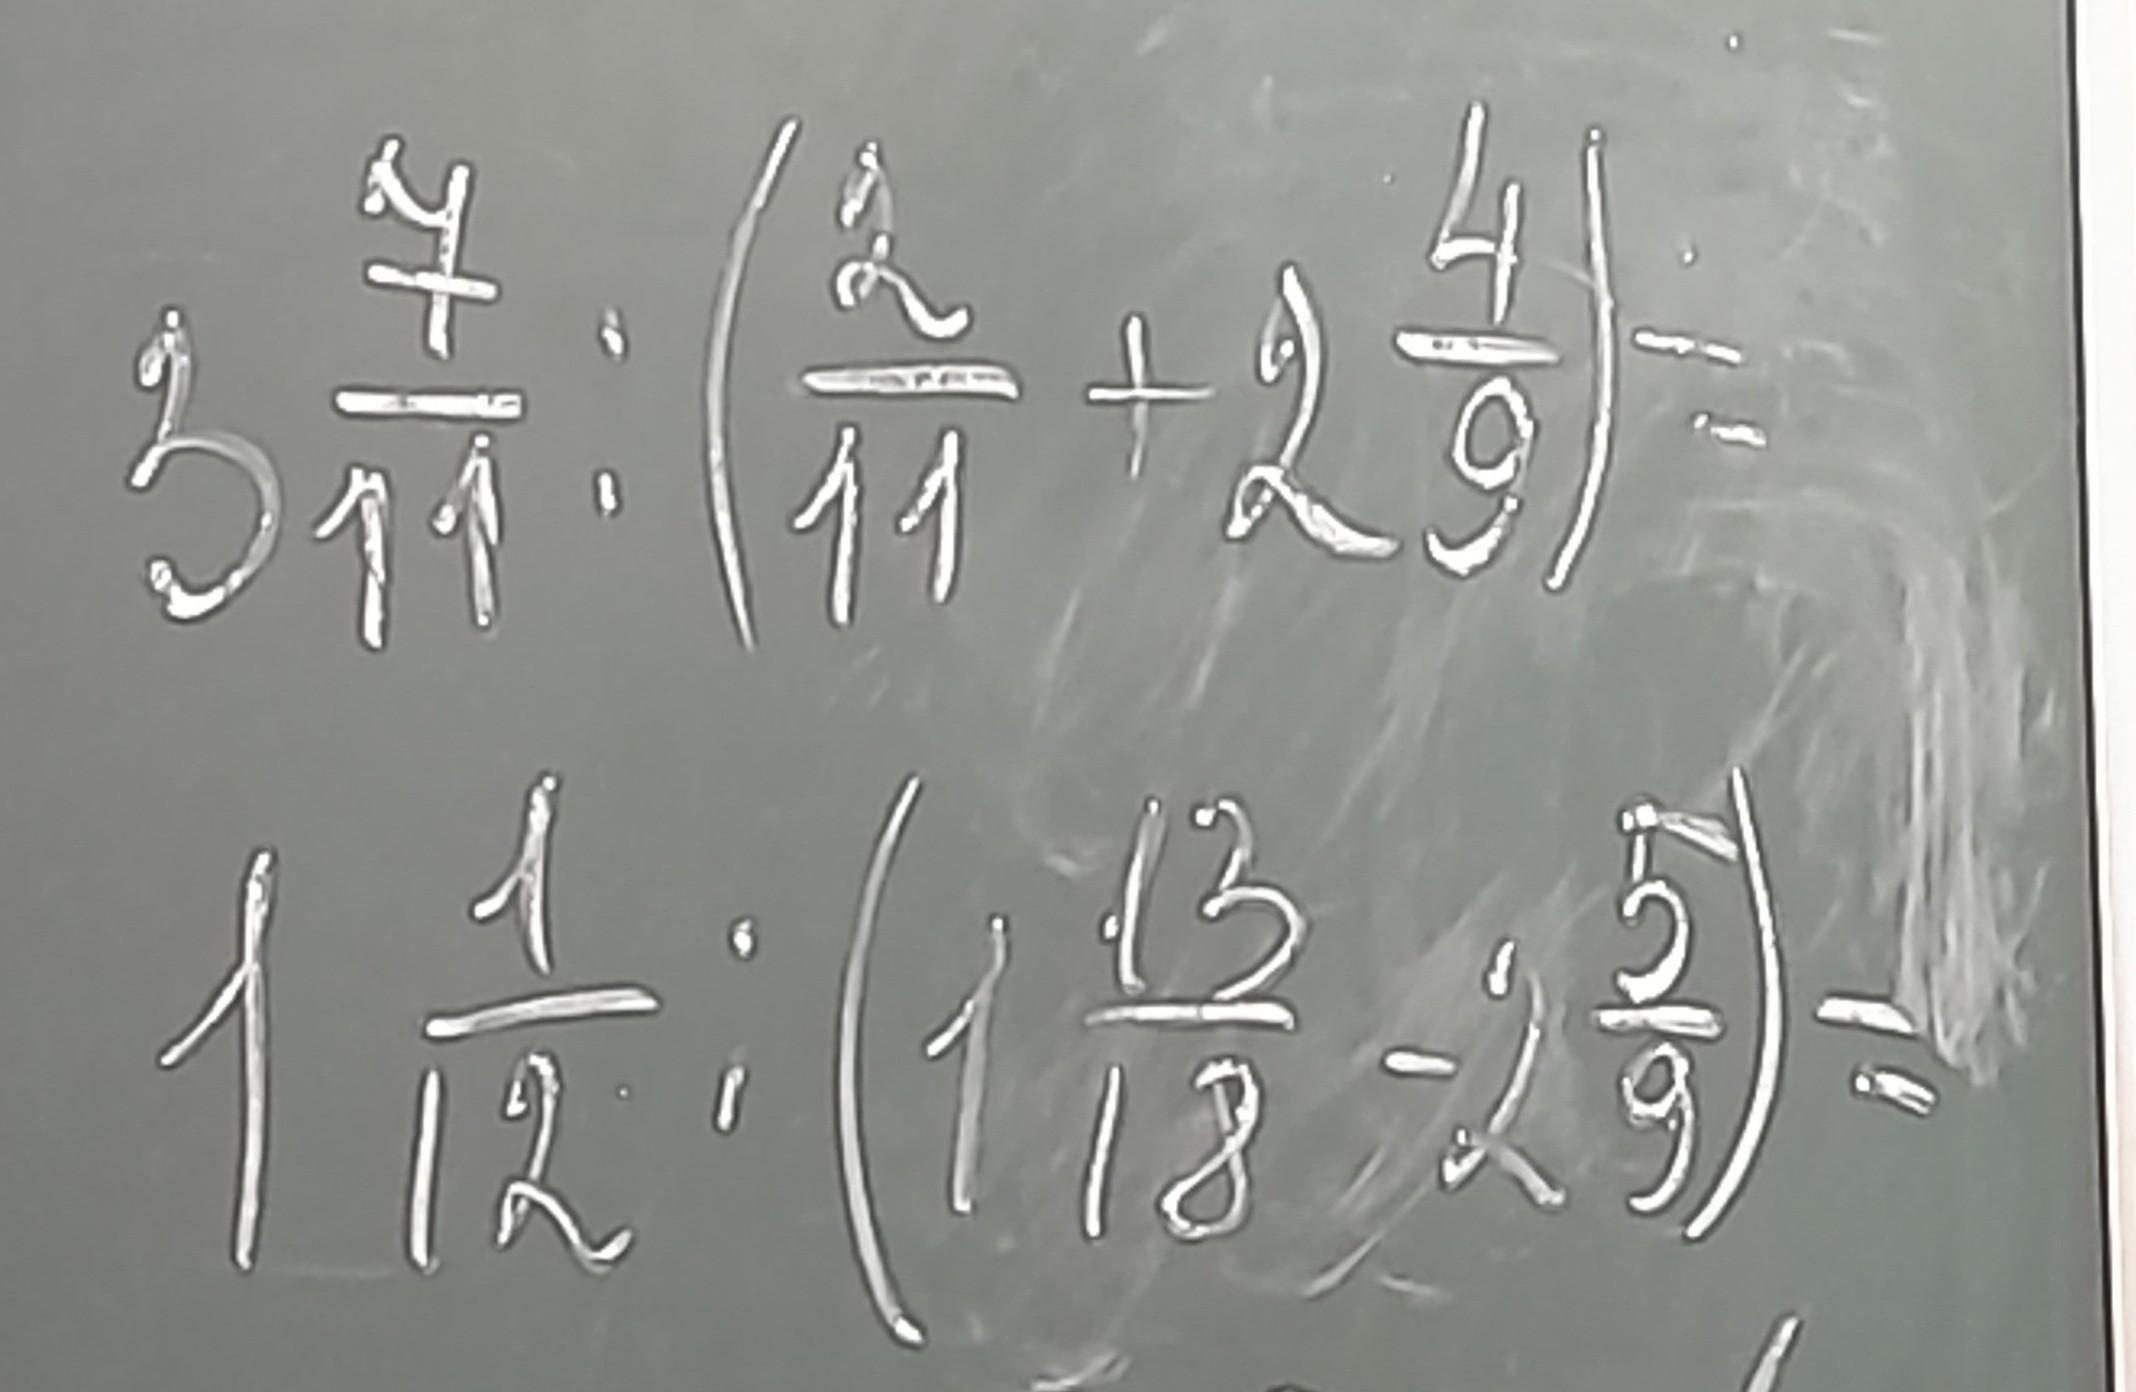 3 7/11 : (2/11 + 2 4/9) =
1 1/12 : (1 13/18 - 2 5/9) =